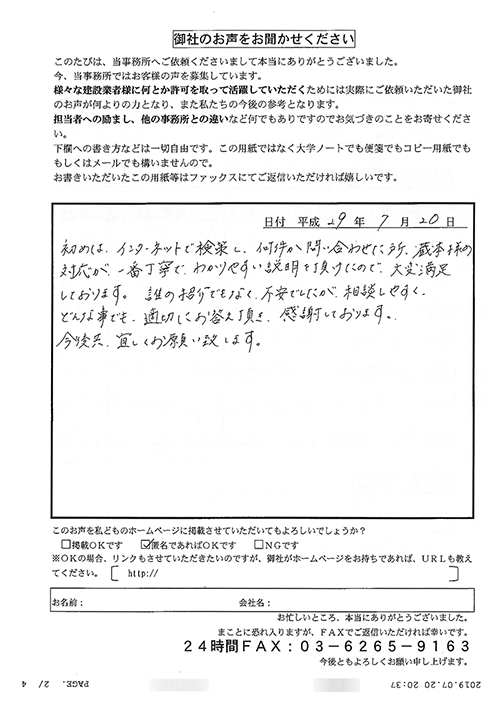 御社のお声をお聞かせください
このたびは、当事務所へご依頼くださいまして本当にありがとうございました。
今、当事務所ではお客様の声を募集しています。
様々な建設業者様に何とか許可を取って活躍していただくためには実際にご依頼いただいた御社
のお声が何よりの力となり、また私たちの今後の参考となります。
担当者への励まし、他の事務所との違いなど何でもありですのでお気づきのことをお寄せくださ
い。
下欄への書き方などは一切自由です。この用紙ではなく大学ノートでも便箋でもコピー用紙でも
もしくはメールでも構いませんので。
お書きいただいたこの用紙等はファックスにてご返信いただければ嬉しいです。
日付 平成 29 年 7 月 20 日
初めは、インターネットで検索し、何件か問い合わせた所、蔵本様の
対応が、一番丁寧で、わかりやすい説明を頂けたので、大変満足
しております。誰の紹介でもなく、不安でしたが、相談しやすく、
どんな事でも、適切にお答え頂き、感謝しております。
今後共、宜しくお願い致します。
このお声を私どものホームページに掲載させていただいてもよろしいでしょうか？
□掲載OKです ☑匿名であればOKです □NGです
※OKの場合、リンクもさせていただきたいのですが、御社がホームページをお持ちであれば、URLも教え
てください。〔 http:// 〕
お名前： 会社名：
お忙しいところ、本当にありがとうございました。
まことに恐れ入りますが、FAXでご返信いただければ幸いです。
24時間FAX：03-6265-9163
今後ともよろしくお願い申し上げます。
2019.07.20 20:37 PAGE. 2/ 4